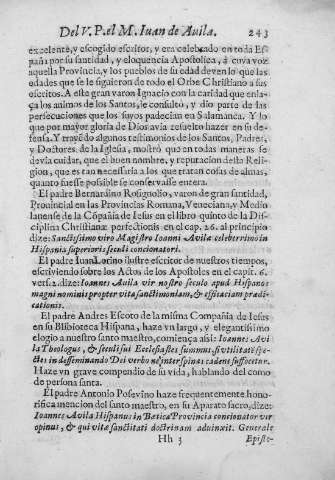 Del V. P. el M. Iuan de Auila. 243
excelente, y escogido escritor, y era celebrado en toda Es-
paña por su santidad, y eloquencia Apostolica, à cuya voz
aquella Prouincia, y los pueblos de su edad deuen lo que las
edades que se le siguieron de todo el Orbe Christiano a sus
escritos. A este gran varon Ignacio con la caridad que enla-
ça los animos de los Santos, le consultó, y dio parte de las
persecuciones que los suyos padecian en Salamanca. Y lo
que por mayor gloria de Dios auia resuelto hazer en su de-
fensa. Y trayẽdo algunos testimonios de los Santos, Padres,
y Doctores de la Iglesia, mostró que en todas maneras se
deuia cuidar, que el buen nombre, y reputacion desta Reli-
gion, que es tan necessaria a los que tratan cosas de almas,
quanto fuesse possible se conseruasse entera.
El padre Bernardino Rosignolfo, varon de gran santidad,
Prouincial en las Prouincias Romana, Veneciana, y Medio
lanense de la Cõpañia de Iesus en el libro quinto de la Dis-
ciplina Christianæ perfectionis en el cap. 26. al principio
dize: Sanctissimo viro Magistro Ioanni Auilæ celeberrimo in
Hispania superioris seculi concionatori.
El padre Iuan Lorino ilustre escritor de nuestros tiempos,
escriuiendo sobre los Actos de los Apostoles en el capit. 6.
vers. 2. dize: Ioannes Auila vir nostro seculo apud Hispanos
magni nominis propter vitæ sanctimoniam, & efficaciam prædi-
cationis.
El padre Andres Escoto de la misma Compañia de Iesus
en su Blibioteca Hispana, haze vn largo, y elegantissimo
elogio a nuestro santo maestro, comiença assi: Ioannes Aui
la Theologus, & seculi sui Ecclesiastes summus, si vtilitatẽ spe-
ctes in disseminando Dei verbo ne inter spinas cadens suffocetur.
Haze vn graue compendio de su vida, hablando del como
de persona santa.
El padre Antonio Posevino haze frequentemente hono-
rifica mencion del santo maestro, en su Aparato sacro, dize:
Ioannes Auila Hispanus in Bætica Prouincia concionator vir
opinus, & qui vitæ sanctitati doctrinam adiunxit. Generale
Hh 3 Episte-